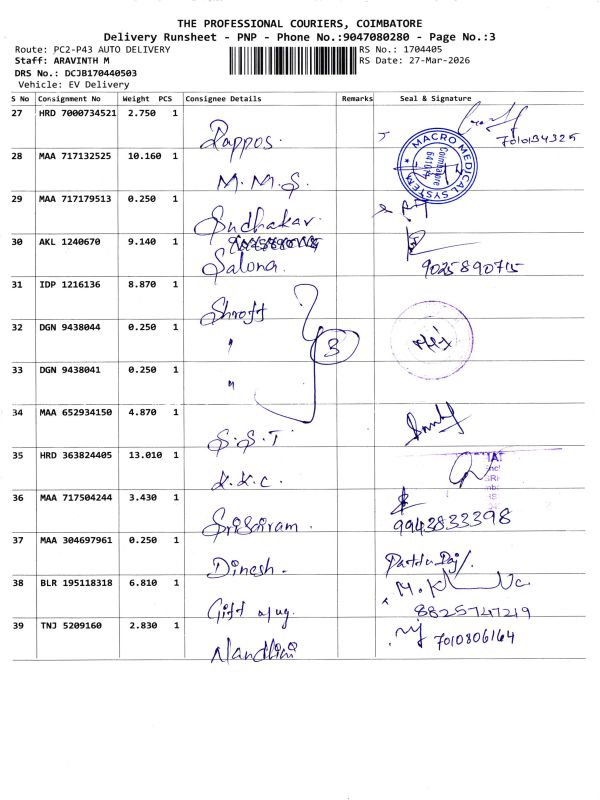 THE PROFESSIONAL COURIERS, COIMBATORE
Delivery Runsheet - PNP - Phone No.:9047080280 - Page No.:3
Route: PC2-P43 AUTO DELIVERY RS No.: 1704405
Staff: ARAVINTH M RS Date: 27-Mar-2026
DRS No.: DCJB170440503
Vehicle: EV Delivery
S No Consignment No Weight PCS Consignee Details Remarks Seal & Signature
27 HRD 7000734521 2.750 1
Rappos. 7010134325
28 MAA 717132525 10.160 1
M.M.S. MACRO MEDICAL SYSTEM Coimbatore
29 MAA 717179513 0.250 1
Sudhakar.
30 AKL 1240670 9.140 1
Salona. 9025890715
31 IDP 1216136 8.870 1
Shroff
32 DGN 9438044 0.250 1
" 3
33 DGN 9438041 0.250 1
"
34 MAA 652934150 4.870 1
S.S.T
35 HRD 363824405 13.010 1
K.K.C.
36 MAA 717504244 3.430 1
Sri Sairam. 9943833398
37 MAA 304697961 0.250 1
Dinesh.
38 BLR 195118318 6.810 1
Gift 8825747219
39 TNJ 5209160 2.830 1
Nandhini 7010806164